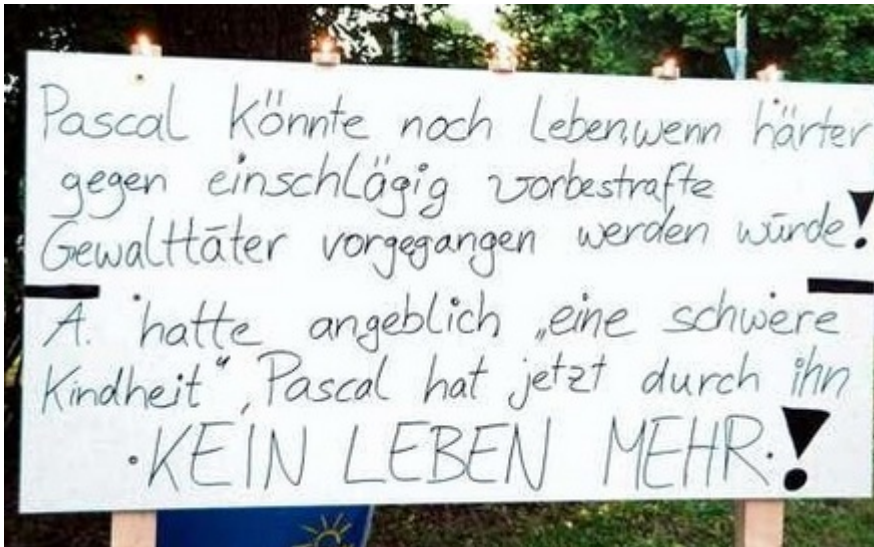 Pascal könnte noch leben,wenn härter
gegen einschlägig vorbestrafte
Gewalttäter vorgegangen werden würde!
A. hatte angeblich „eine schwere
Kindheit“, Pascal hat jetzt durch ihn
·KEIN LEBEN MEHR·!